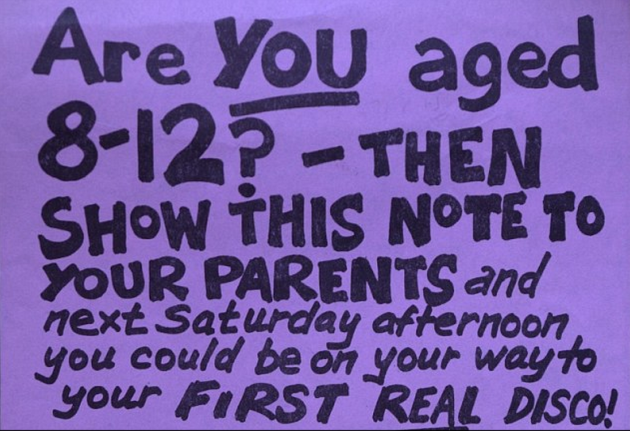 Are YOU aged
8-12? - THEN
SHOW THIS NOTE TO
YOUR PARENTS and
next Saturday afternoon
you could be on your way to
your FIRST REAL DISCO!